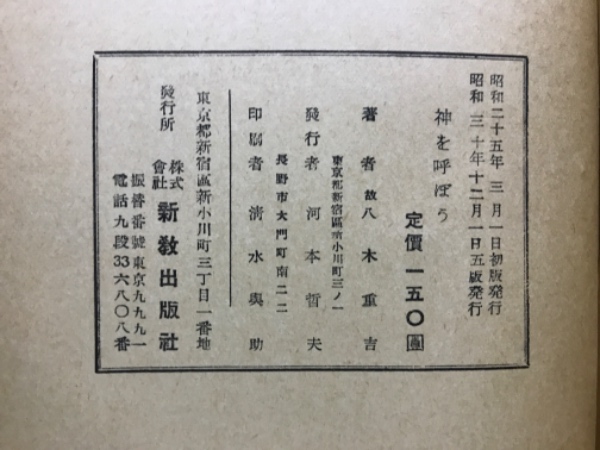 昭和二十五年 三月一日初版発行
昭和 三十年十二月一日五版発行
神を呼ぼう
定價 一五〇圓
著者 故八木重吉
東京都新宿區新小川町三ノ一
發行者 河本哲夫
長野市大門町南二二
印刷者 淸水與助
東京都新宿區新小川町三丁目一番地
發行所 株式會社 新敎出版社
振替番號東京九九九一
電話九段33六八〇八番